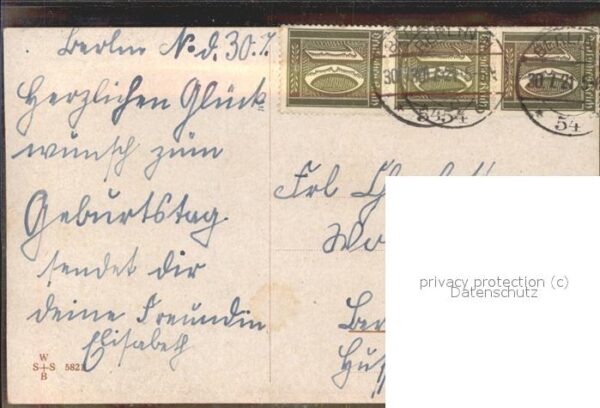 Berlin No. d. 30.7.
Herzlichen Glück-
wunsch zum
Geburtstag
sendet dir
deine Freundin
Elisabeth
W
S+S 5821
B
10 10 10
Deutsches Reich
BERLIN
54 54 54
Frl
privacy protection (c)
Datenschutz